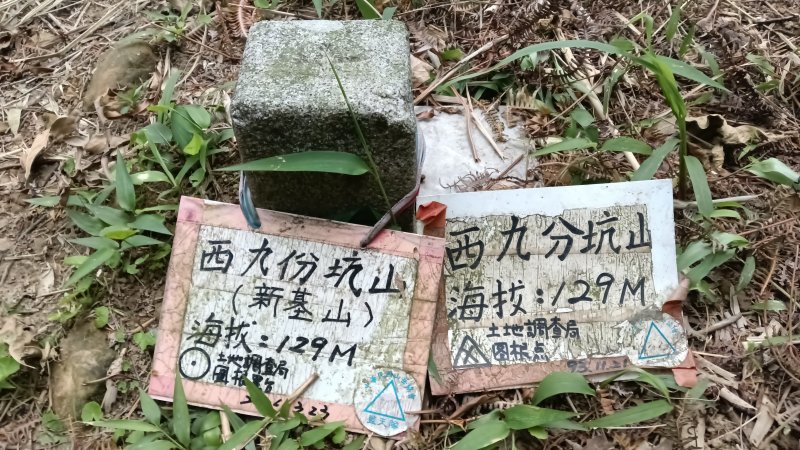 西九份坑山
(新基山)
海拔:129M
土地調查局
圖根點
西九分坑山
海拔:129M
土地調查局
圖根点
93.11.3
藍天隊